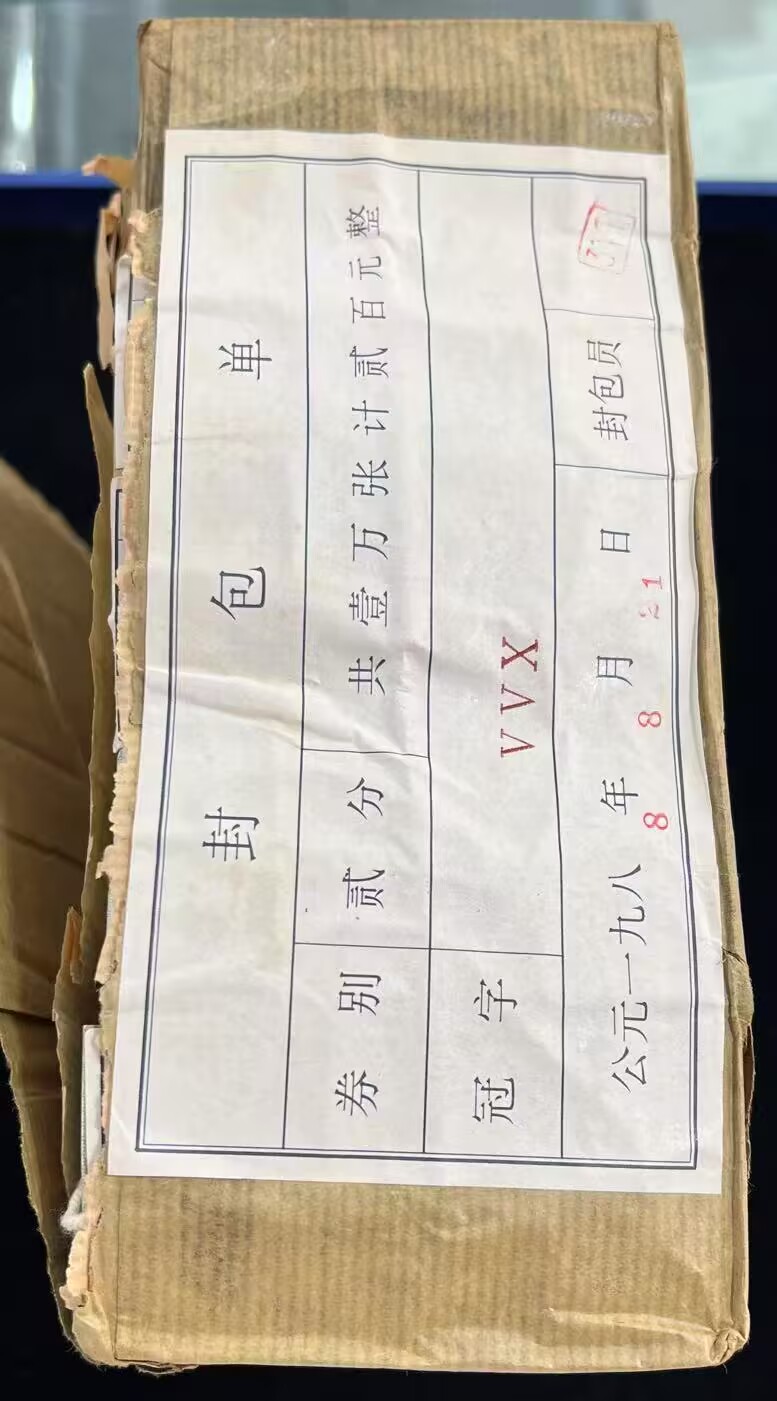 封包单
券别 贰分 共壹万张计贰百元整
冠字 VVX
公元一九八8年8月21日 封包员